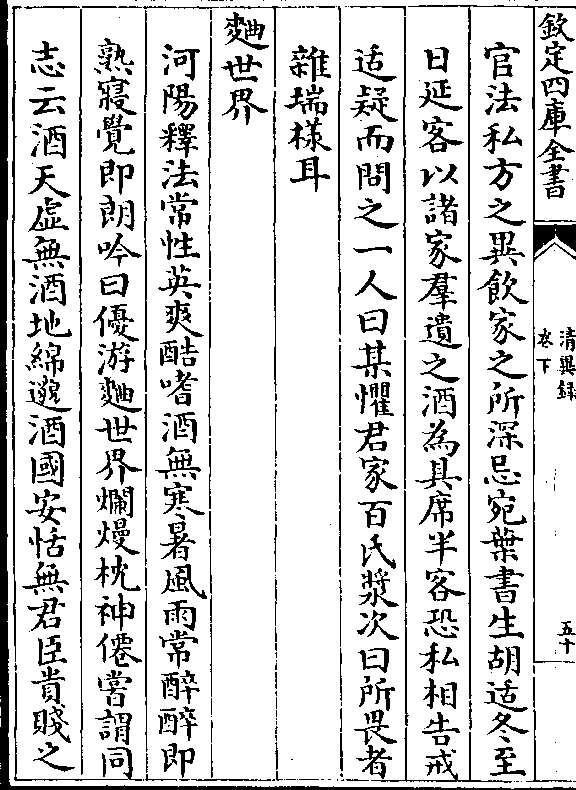 欽定四庫全書
清異録
卷下
五十
官法私方之異飲家之所深忌宛葉書生胡适冬至
日延客以諸家羣遺之酒為具席半客恐私相告戒
适疑而問之一人曰某懼君家百氏漿次曰所畏者
雜瑞樣耳
麯世界
河陽釋法常性英爽酷嗜酒無寒暑風雨常醉醉即
熟寢覺即朗吟曰優游麯世界爛熳枕神僊嘗謂同
志云酒天虛無酒地綿邈酒國安恬無君臣貴賤之